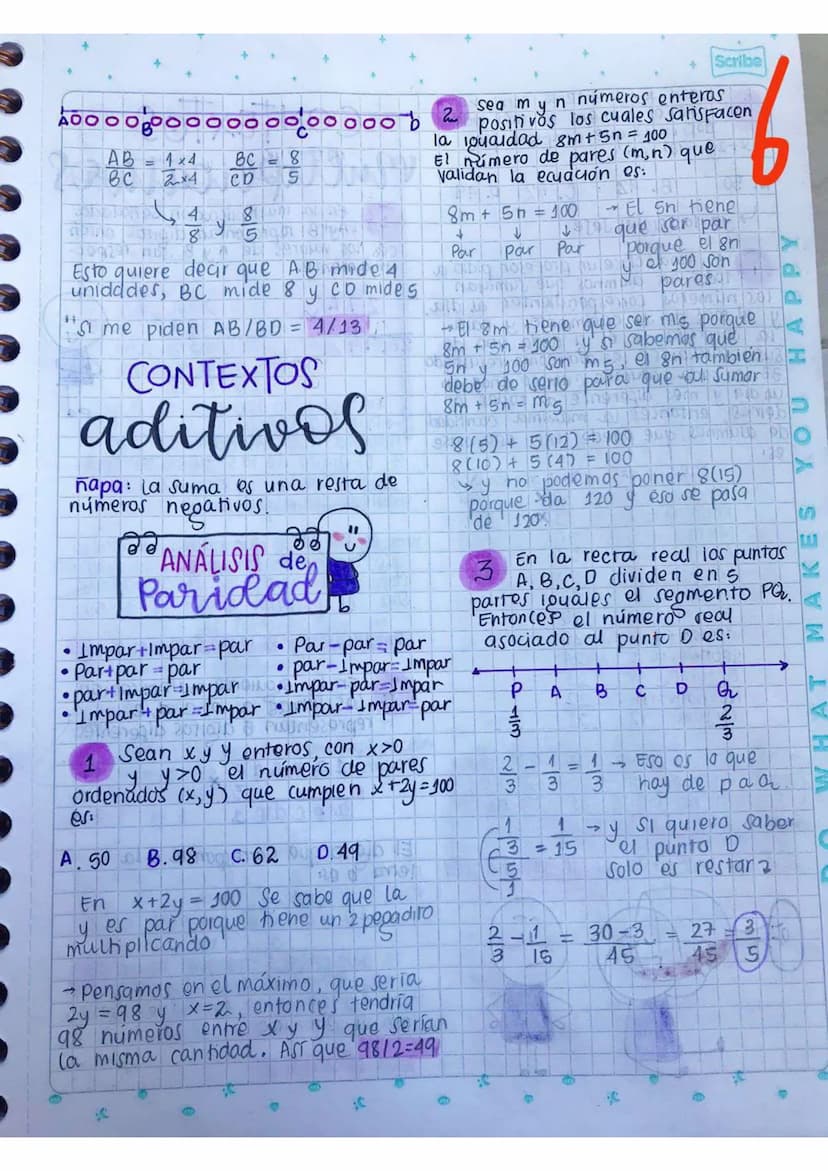 Scribe
6
A B C D
AB/BC = 1x4/2x4 BC/CD = 8/5
4/8 y 8/5
Esto quiere decir que AB mide 4
unidades, BC mide 8 y CD mide 5
"si me piden AB/BD = 4/13
CONTEXTOS
aditivos
ñapa: la suma es una resta de
números negativos.
ANÁLISIS de
Paridad
• Impar+Impar=par
• Par+par=par
• par+Impar=Impar
• Impar+par=Impar
• Par-par=par
• par-Impar=Impar
• Impar-par=Impar
• Impar-Impar=par
1 Sean x y y enteros, con x>0
y y>0 el número de pares
ordenados (x,y) que cumplen x+2y=100
es:
A. 50 B. 98 C. 62 D. 49
En x+2y=100 Se sabe que la
y es par porque tiene un 2 pegadito
multiplicando
→ Pensamos en el máximo, que sería
2y=98 y x=2, entonces tendría
98 números entre x y y que serían
la misma cantidad. Así que 98/2=49
2 sea m y n números enteros
positivos los cuales satisfacen
la igualdad 8m+5n=100
El número de pares (m,n) que
validan la ecuación es:
8m + 5n = 100 → El 5n tiene
↓ ↓ ↓ que ser par
Par par Par porque el 8n
y el 100 son
pares
→ El 8m tiene que ser m5 porque
8m + 5n = 100 y si sabemos que
5n y 100 son m5, el 8n también
debe de serlo para que al sumar
8m + 5n = m5
8(5) + 5(12) = 100
8(10) + 5(4) = 100
↳ y no podemos poner 8(15)
porque da 120 y eso se pasa
de 120
3 En la recta real los puntos
A, B, C, D dividen en 5
partes iguales el segmento PQ.
Entonces el número real
asociado al punto D es:
P A B C D Q
1/3 2/3
2/3 - 1/3 = 1/3 → Eso es lo que
hay de p a Q
(1/3)/(5/1) = 1/15 → y si quiero saber
el punto D
solo es restar
2/3 - 1/15 = 30-3/45 = 27/45 = 3/5
DO WHAT MAKES YOU HAPPY